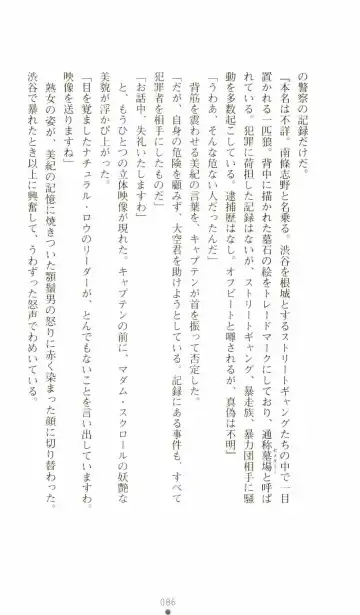 の警察の記録だけだ。
『本名は不詳。南條志野と名乗る。渋谷を根城とするストリートギャングたちの中で一目
置かれる一匹狼。背中に描かれた墓石の絵をトレードマークにしており、通称墓場と呼ば
れている。犯罪に荷担した記録はないが、ストリートギャング、暴走族、暴力団相手に騒
動を多数起こしている。逮捕歴はなし。オフビートと噂されるが、真偽は不明』
「うわあ、そんな危ない人だったんだ」
背筋を震わせる美紀の言葉を、キャプテンが首を振って否定した。
「だが、自身の危険を顧みず、大空君を助けようとしている。記録にある事件も、すべて
犯罪者を相手にしたものだ」
「お話中、失礼いたしますわ」
と、もうひとつの立体映像が現れた。キャプテンの前に、マダム・スクロールの妖艶な
美貌が浮かび上がった。
「目を覚ましたナチュラル・ロウのリーダーが、とんでもないことを言い出していますわ。
映像を送りますね」
熟女の姿が、美紀の記憶に焼きついた顎鬚男の怒りに赤く染まった顔に切り替わった。
渋谷で暴れたとき以上に興奮して、うわずった怒声でわめいている。
086